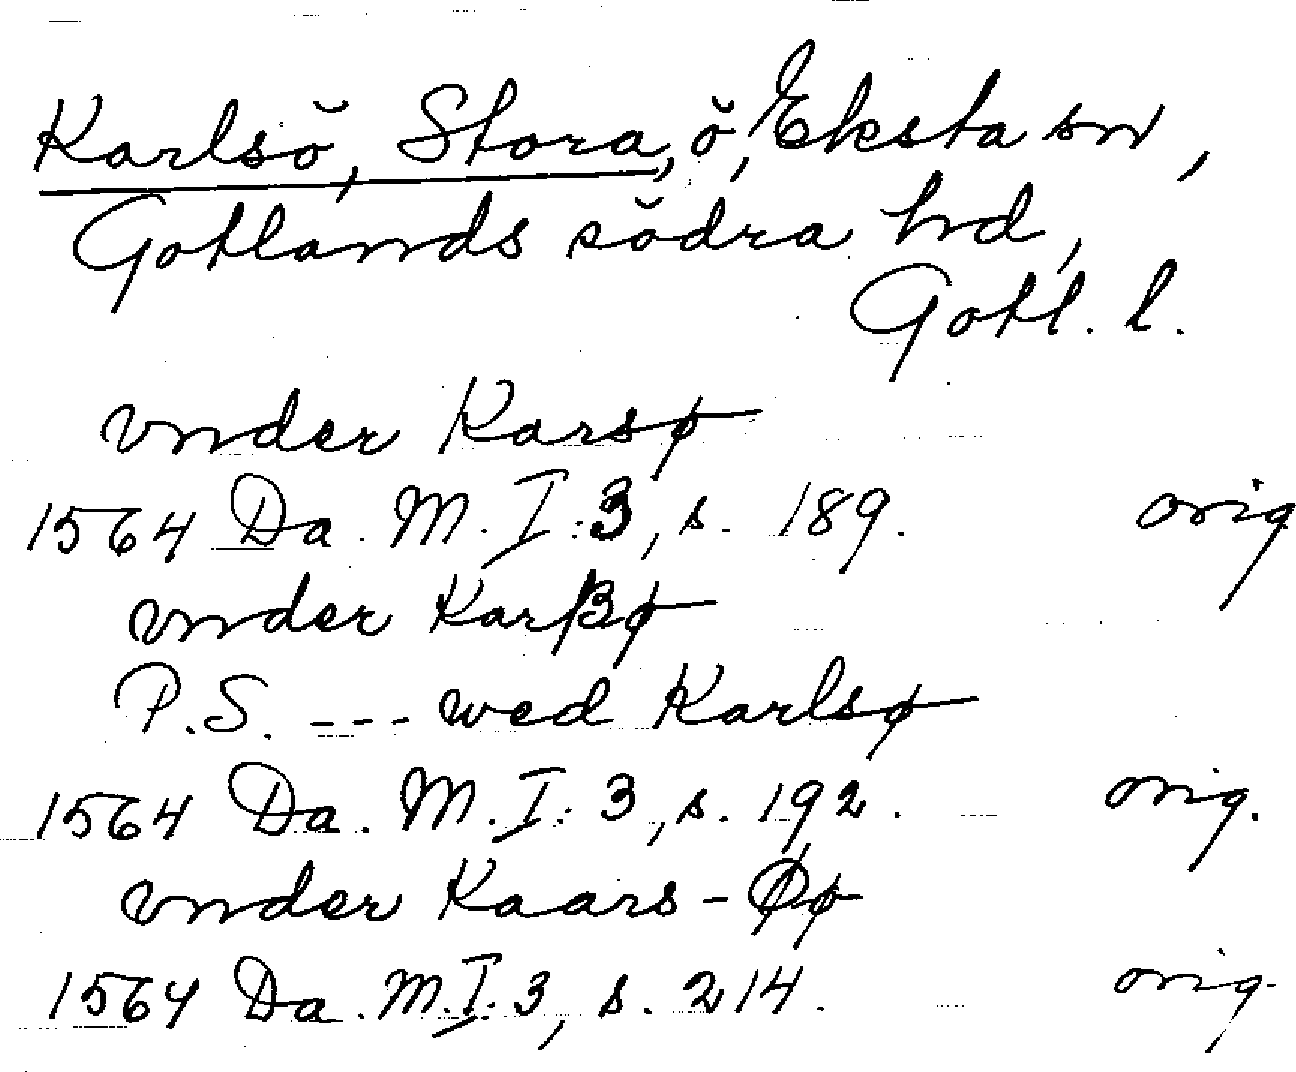 Karlsö, Stora, ö, Eksta sn,
Gotlands södra hd,
Gotl. l.
vnder Karsø
1564 Da. M. I:3, s. 189. orig
vnder Karßø
P.S. --- wed Karlsø
1564 Da. M. I:3, s. 192. orig.
vnder Kaars-Øø
1564 Da. M. I:3, s. 214. orig.